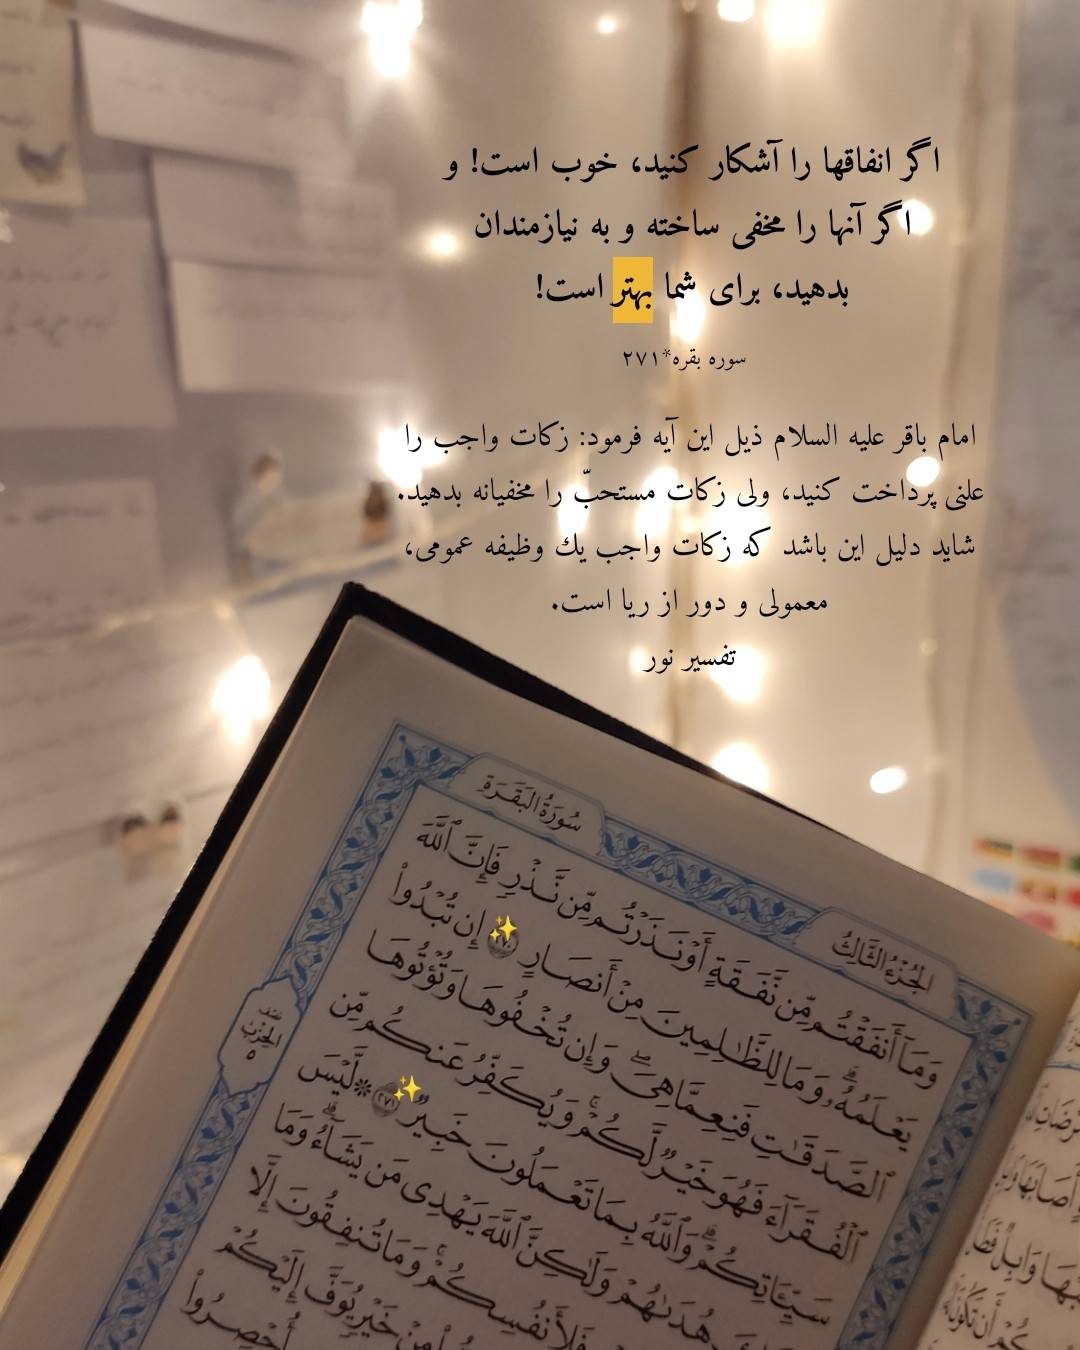 اگر انفاقها را آشکار کنید، خوب است! و
اگر آنها را مخفی ساخته و به نیازمندان
بدهید، برای شما بهتر است!
سوره بقره*۲۷۱
امام باقر علیه السلام ذیل این آیه فرمود: زکات واجب را
علنی پرداخت کنید، ولی زکات مستحبّ را مخفیانه بدهید.
شاید دلیل این باشد که زکات واجب یك وظیفه عمومی،
معمولی و دور از ریا است.
تفسیر نور
سُورَةُ البَقَرَةِ
الجُزْءُ الثَّالِثُ
وَمَآ أَنفَقْتُم مِّن نَّفَقَةٍ أَوْ نَذَرْتُم مِّن نَّذْرٍ فَإِنَّ ٱللَّهَ
يَعْلَمُهُۥۗ وَمَا لِلظَّٰلِمِينَ مِنْ أَنصَارٍ ٢٧٠ إِن تُبْدُوا۟
ٱلصَّدَقَٰتِ فَنِعِمَّا هِىَۖ وَإِن تُخْفُوهَا وَتُؤْتُوهَا
ٱلْفُقَرَآءَ فَهُوَ خَيْرٌ لَّكُمْۚ وَيُكَفِّرُ عَنكُم مِّن
سَيِّـَٔاتِكُمْۗ وَٱللَّهُ بِمَا تَعْمَلُونَ خَبِيرٌ ٢٧١ * لَّيْسَ
هُدَىٰهُمْ وَلَٰكِنَّ ٱللَّهَ يَهْدِى مَن يَشَآءُۗ وَمَا
فَلِأَنفُسِكُمْۚ وَمَا تُنفِقُونَ إِلَّا
مِنْ خَيْرٍ يُوَفَّ إِلَيْكُمْ
أُحْصِرُوا۟
الحِزْب
٥